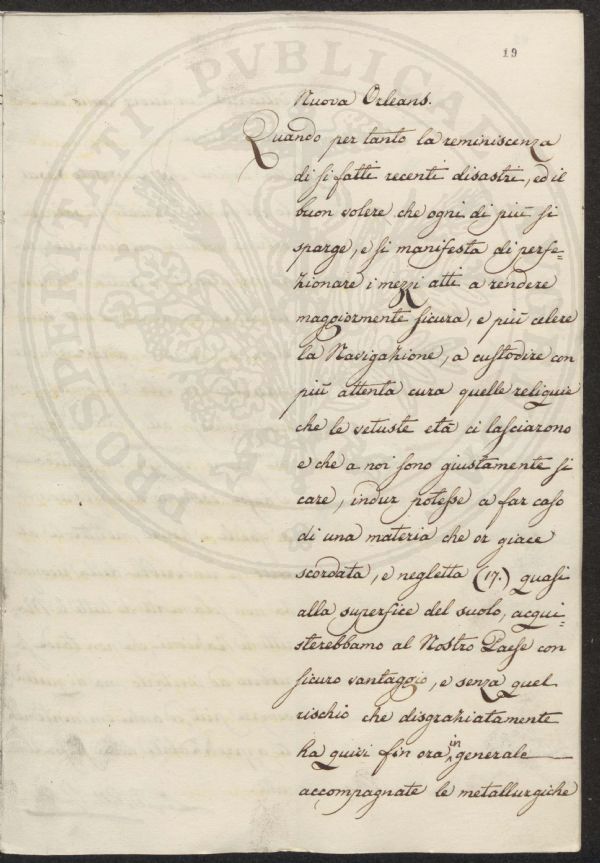 19
PROSPERITATI PVBLICAE
Nuova Orleans.
Quando per tanto la reminiscenza
di si fatti recenti disastri, ed il
buon volere che ogni di più si
sparge, e si manifesta di perfe=
zionare i mezzi atti a rendere
maggiormente sicura, e più celere
la Navigazione, a custodire con
più attenta cura quelle reliquie
che le vetuste età ci lasciarono
e che a noi sono giustamente si
care, indur potesse a far caso
di una materia che or giace
scordata, e negletta (17.) quasi
alla superfice del suolo, acqui=
sterebbamo al Nostro Paese con
sicuro vantaggio, e senza quel
rischio che disgraziatamente
ha quivi fin ora in generale
accompagnate le metallurgiche